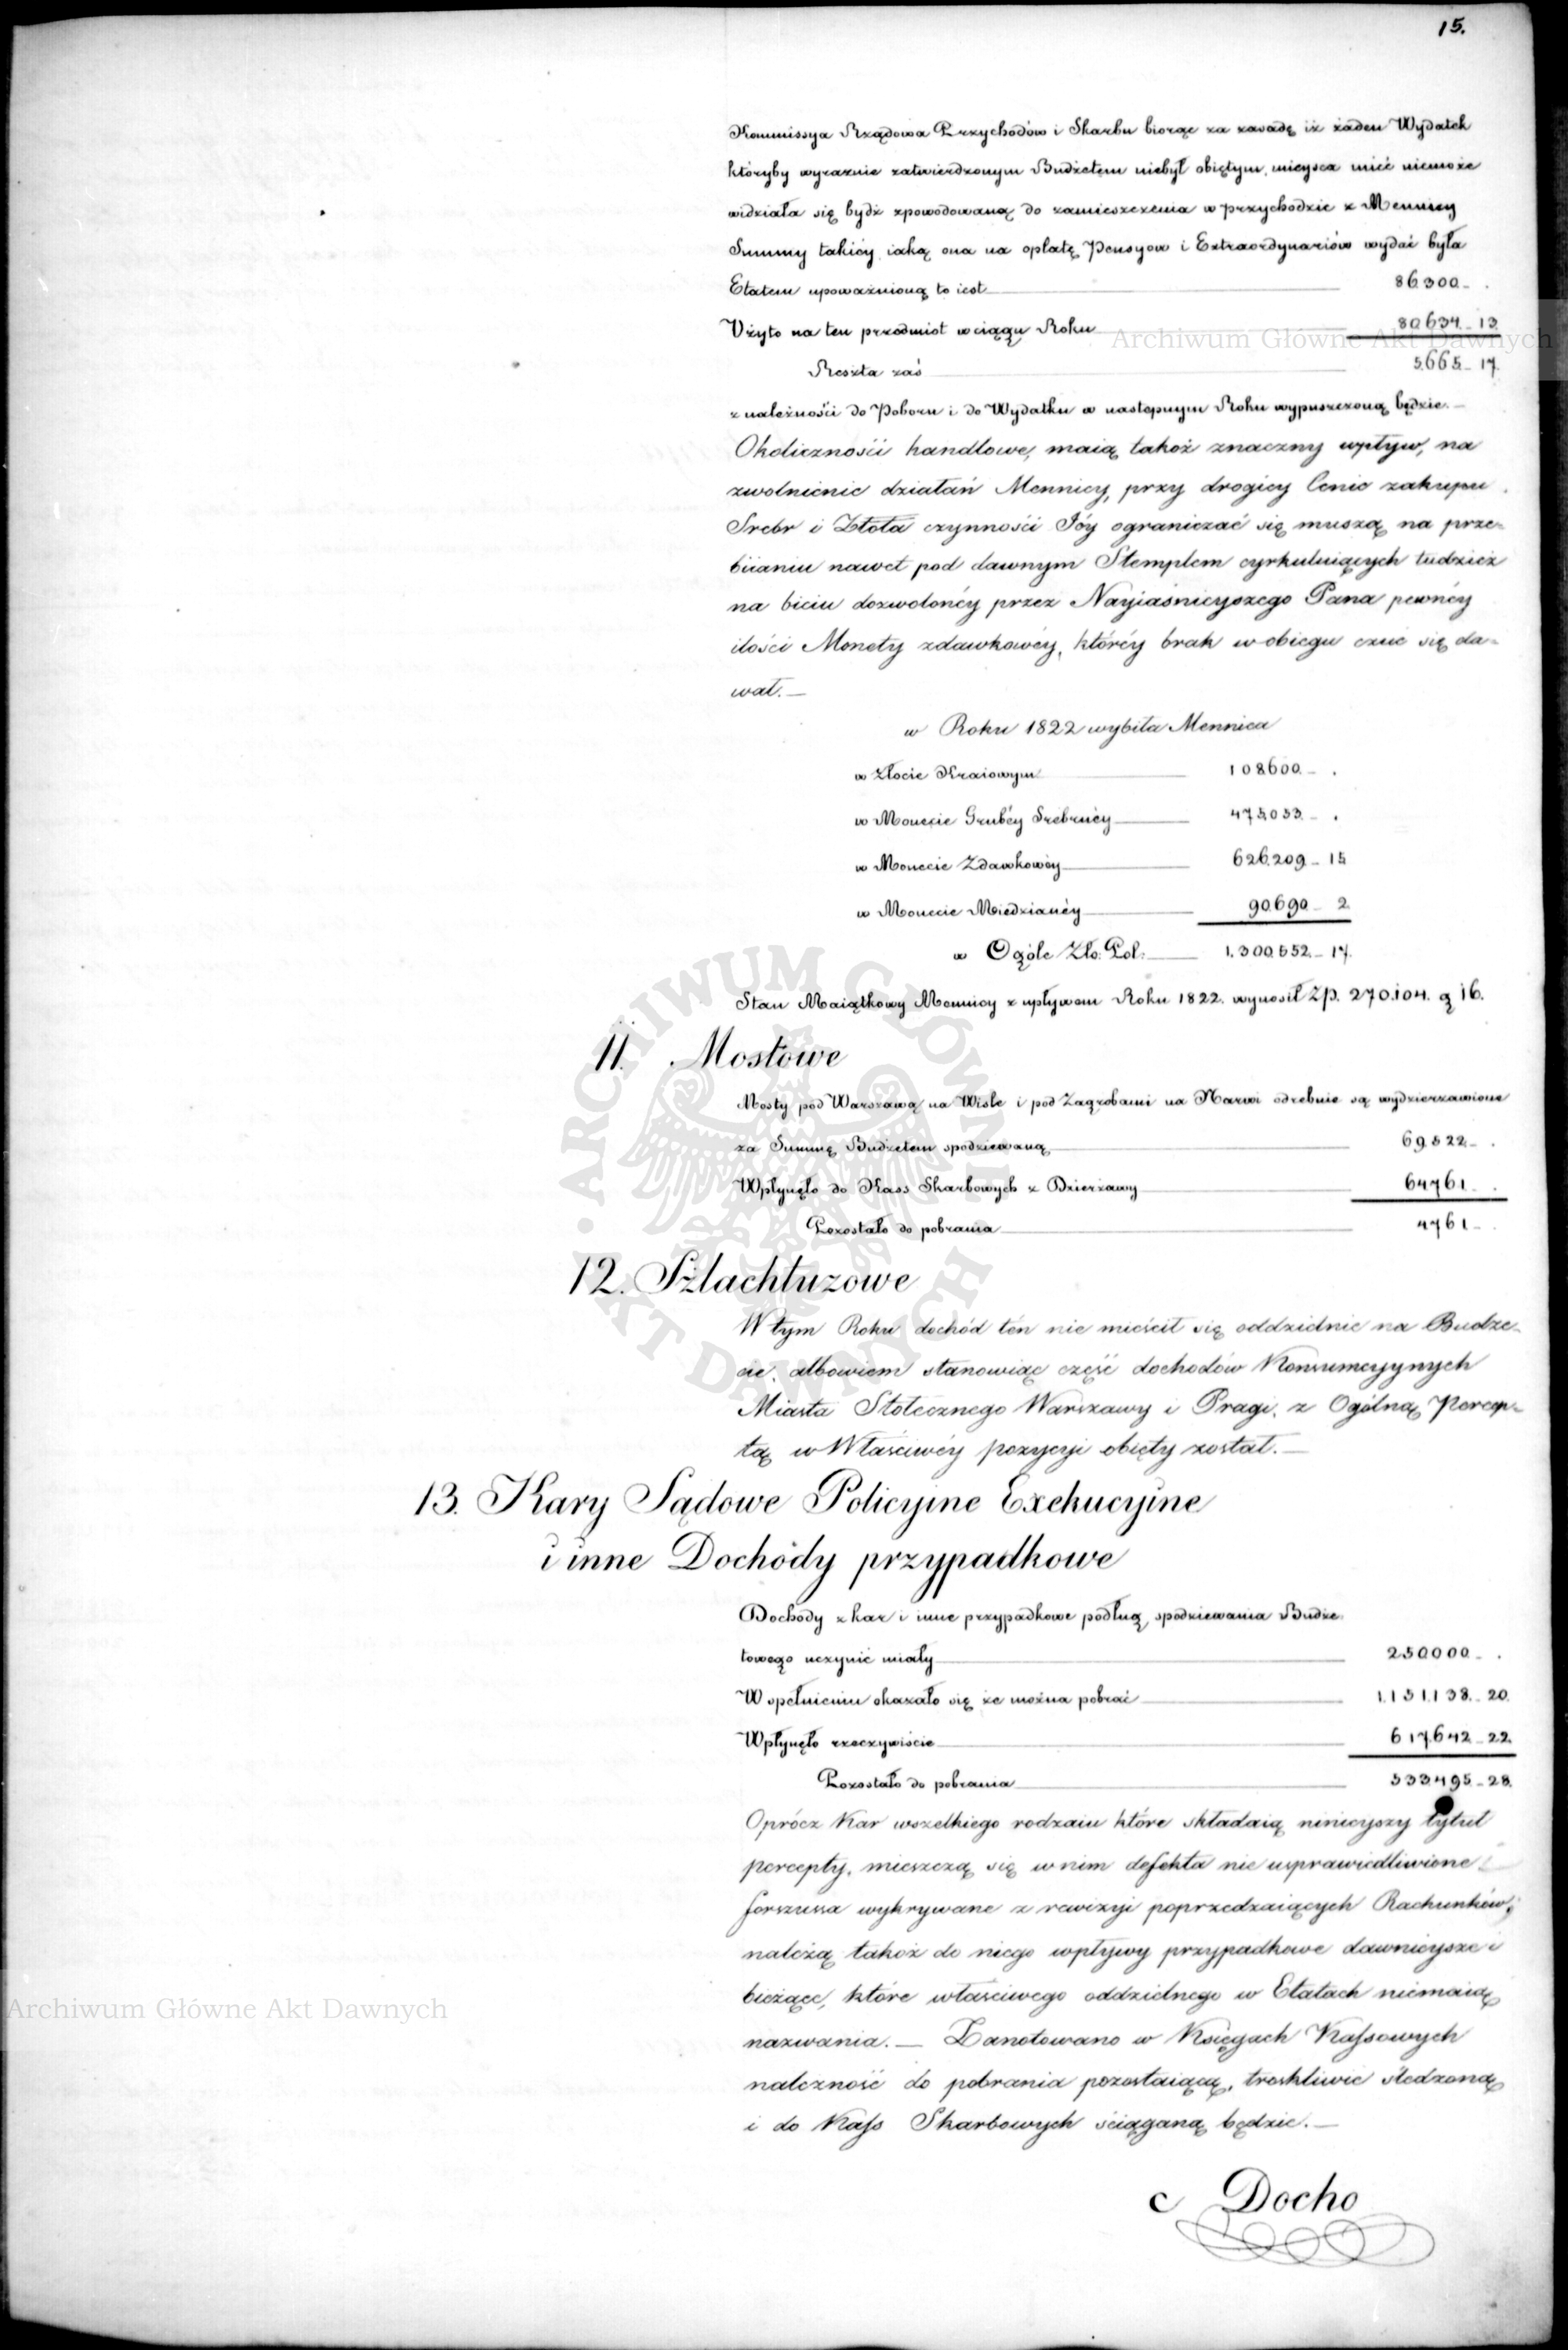 15.
Kommissya Rządowa Przychodów i Skarbu biorąc za zasadę iż żaden Wydatek
któryby wyraznie zatwierdzonym Budżetem niebył obiętym, mieysca mieć niemoże
widziała się bydź spowodowaną do zamieszczenia w przychodzie z Mennicy
Summy takiéy iaką ona na opłatę Pensyow i Extraordynariów wydać była
Etatem upoważnioną to iest 86.300 - .
Użyto na ten przedmiot w ciągu Roku 80.634 - 13
Reszta zaś 5.665 - 17
z należności do Poboru i do Wydatku w następnym Roku wypuszczoną będzie. —
Okoliczności handlowe, maią takoż znaczny wpływ, na
zwolnienie działań Mennicy, przy drogiey Cenie zakupu
Srebr i Złota czynności Jéy ograniczać się muszą na prze-
biianiu nawet pod dawnym Stemplem cyrkuluiących tudzież
na biciu dozwolonéy przez Nayiaśnieyszego Pana pewnéy
ilości Monety zdawkowéy, któréy brak w obiegu czuć się da-
wał. —
w Roku 1822 wybiła Mennica
w Złocie Kraiowym 108.600 - .
w Monecie Grubéy Srebrnéy 475.053 - .
w Monecie Zdawkowéy 626.209 - 15
w Monecie Miedzianéy 90.690 - 2
w Ogóle Zło: Pol: 1.300.552 - 17.
Stan Maiątkowy Mennicy z upływem Roku 1822. wynosił Zp. 270.104. g 16.
11. Mostowe
Mosty pod Warszawą na Wiśle i pod Zagrobami na Narwi odrebnie są wydzierzawione
za Summę Budżetem spodziewaną 69.522 - .
Wpłynęło do Kass Skarbowych z Dzierżawy 64.761 - .
Pozostało do pobrania 4.761 - .
12. Szlachtuzowe
W tym Roku dochód ten nie mieścił się oddzielnie na Budże-
cie, albowiem stanowiąc część dochodów Konsumcyynych
Miasta Stołecznego Warszawy i Pragi, z Ogólną Percep-
tą w Właściwéy pozycyi obięty został. —
13. Kary Sądowe Policyine Exekucyine
i inne Dochody przypadkowe
Dochody z kar i inne przypadkowe podług spodziewania Budże-
towego uczynić miały 250.000 - .
W spełnieniu okazało się że można pobrać 1.151.138 - 20.
Wpłynęło rzeczywiście 617.642 - 22.
Pozostało do pobrania 533.495 - 28.
Oprócz Kar wszelkiego rodzaiu które składaią ninieyszy tytuł
percepty, mieszczą się w nim defekta nie usprawiedliwione i
forszussa wykrywane z rewizyi poprzedzaiących Rachunków;
należą takoż do niego wpływy przypadkowe dawnieysze i
bieżące, które właściwego oddzielnego w Etatach niemaią
nazwania. — Zanotowano w Księgach Kassowych
należność do pobrania pozostaiącą, troskliwie śledzoną
i do Kass Skarbowych ściąganą będzie. —
c Docho
Archiwum Główne Akt Dawnych
Archiwum Główne Akt Dawnych
ARCHIWUM GŁÓWNE AKT DAWNYCH